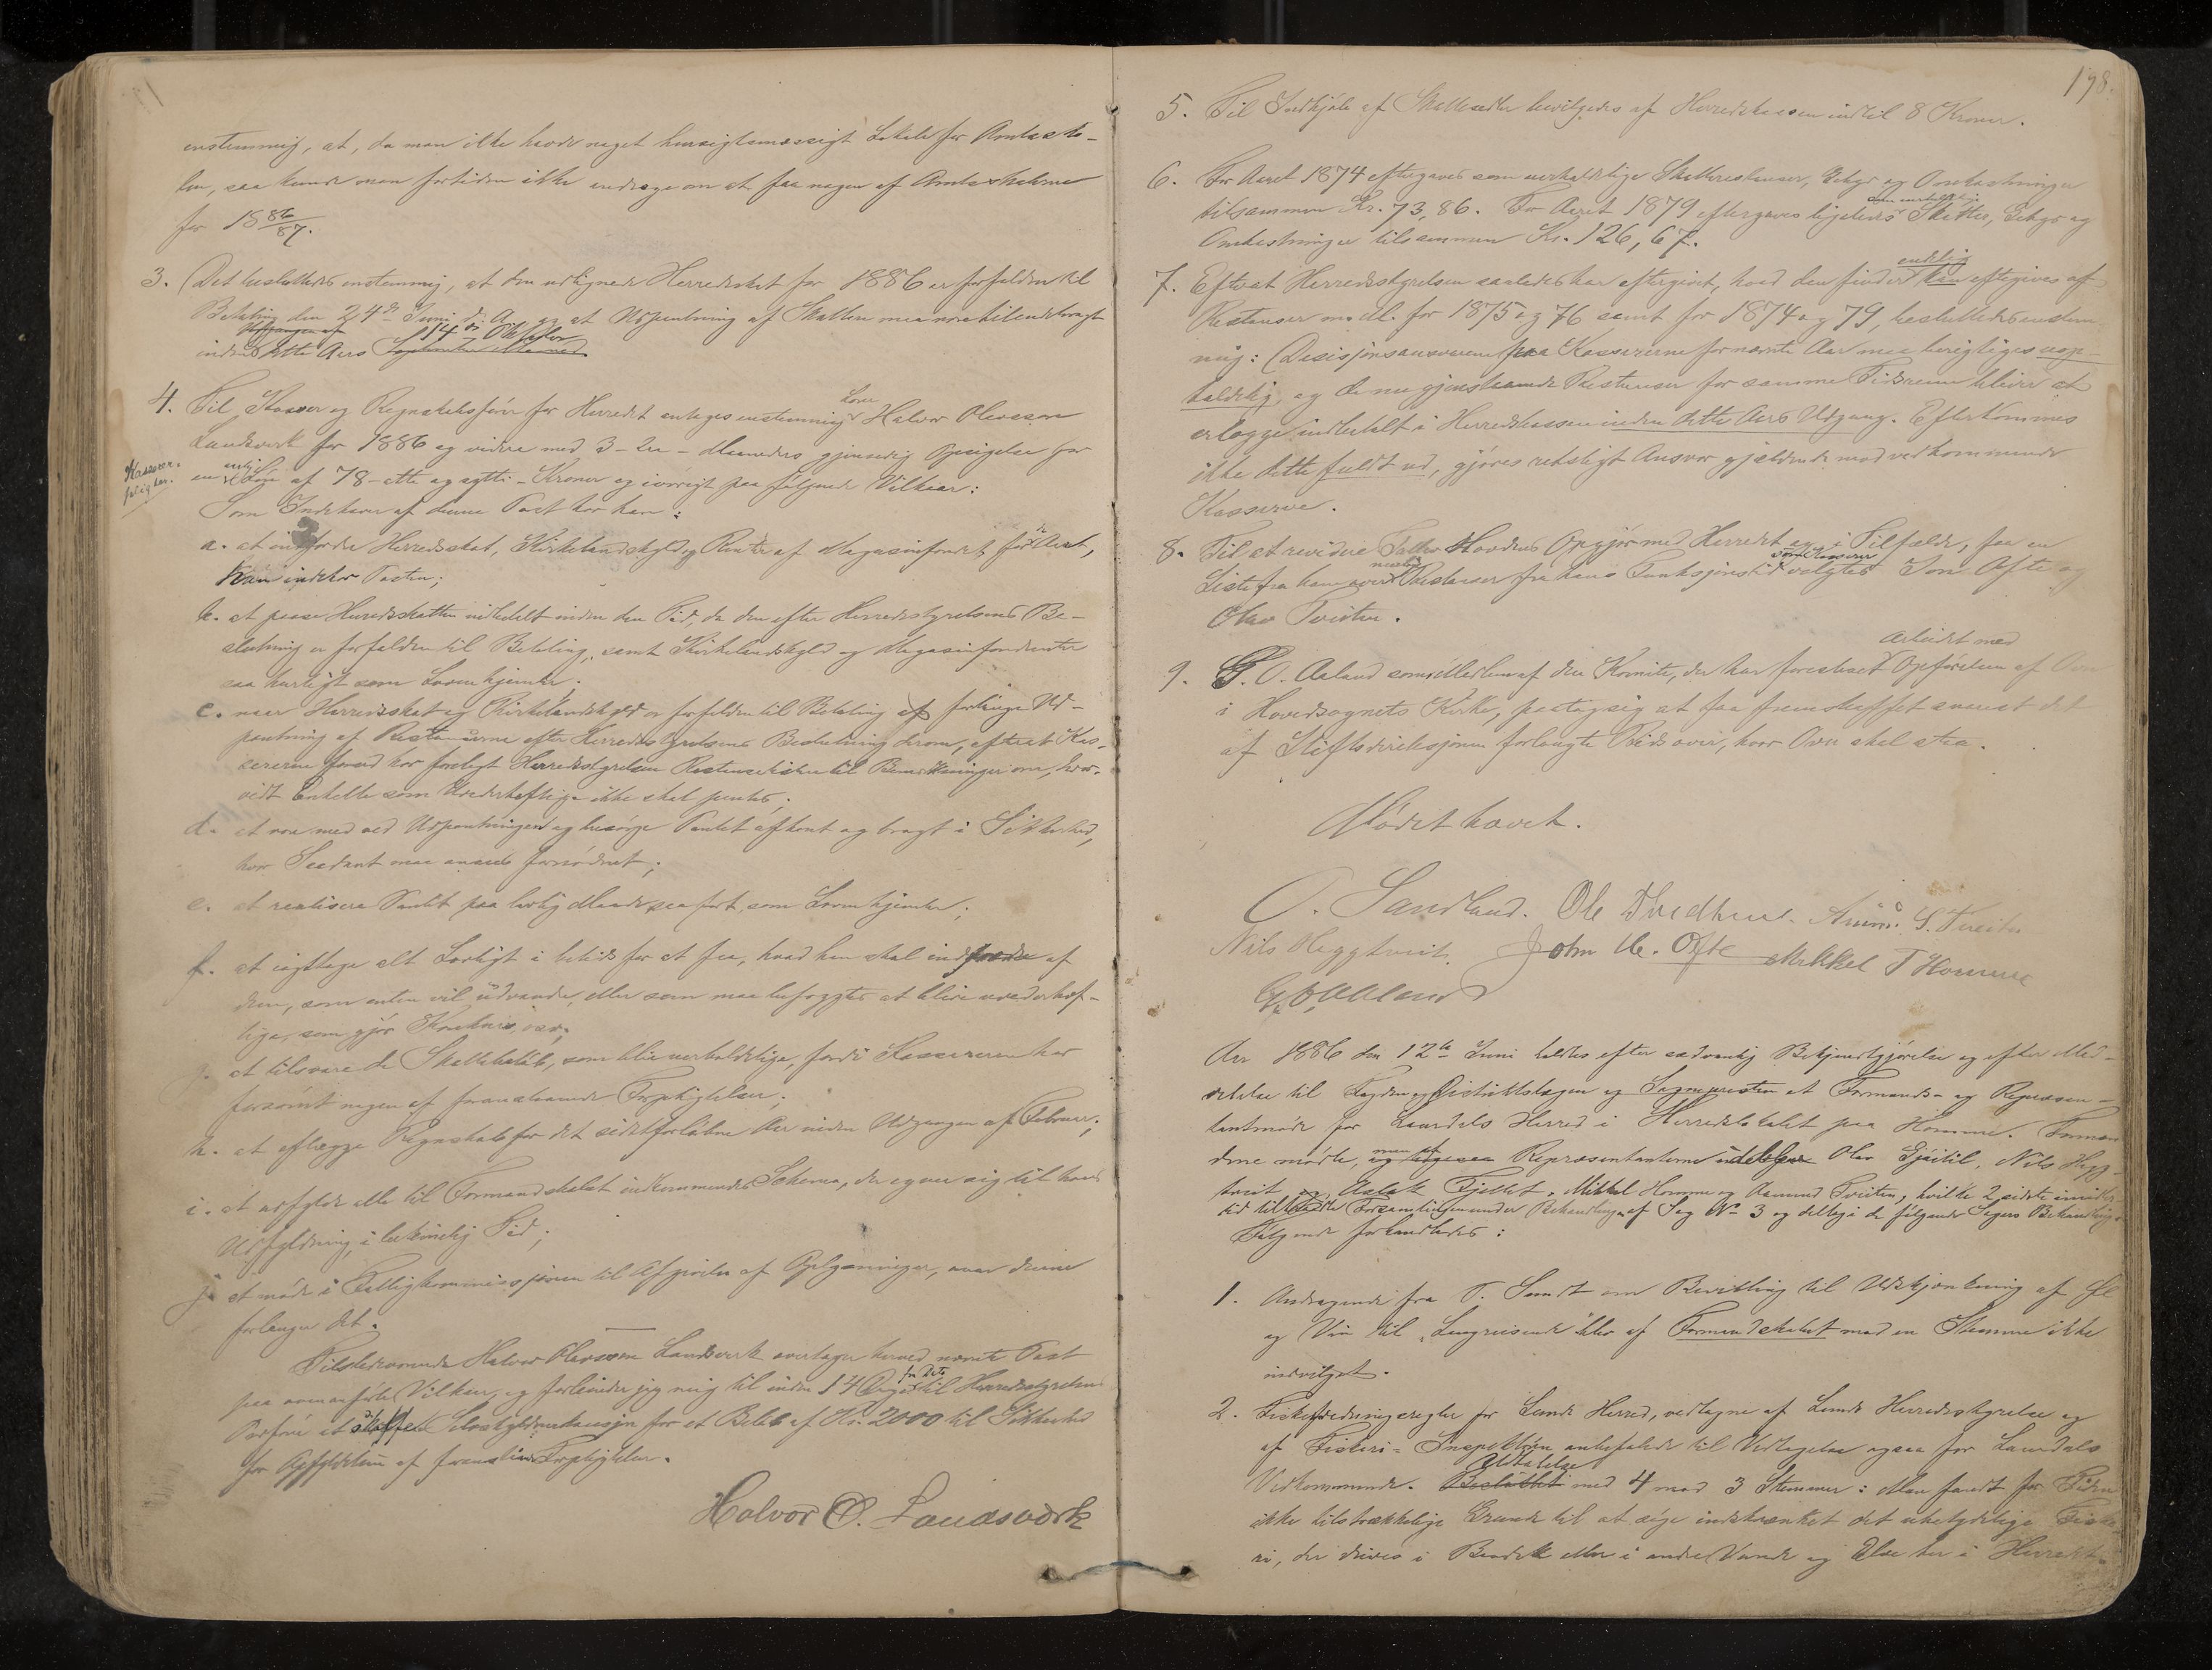 enstemmig, at, da man ikke havde noget hensigtsmæssigt Lokale for Amtssko-
len, saa kunde man fortiden ikke andrage om at faa nogen af Amtsskolerne
for 1886/87.
3. Det besluttedes enstemmig, at den udlignede Herredsskat for 1886 er forfalden til
Betaling den 24de Juni d. A. og at Udpantning af Skatten maa være tilendebragt
Udgangen af 14de Oktober
inden dette Aars September Maaned
4. Til Kasser og Regnskabsfører for Herredet antoges enstemmig Halvor Olavsson
Landsverk for 1886 og videre med 3 - tre - Maaneders gjensidig Opsigelse for
Kasserer-
pligter.
en aarlig Løn af 78 - otte og sytti - Kroner og iøvrigt paa følgende Vilkaar:
Som Indehaver af denne Post har han:
a. at indfordre Herredsskat, Kirkelandskyld og Renter af Magasinfondet for de Aar,
han indehar Posten;
b. at paase Herredsskatten indbetalt inden den Tid, da den efter Herredsstyrelsens Be-
slutning er forfalden til Betaling, samt Kirkelandskyld og Magasinfondrenter
saa hurtigt som Loven hjemler.
c. naar Herredsskat og Kirkelandskyld er forfalden til Betaling at forlange Ud-
pantning af Restancerne efter Herredsstyrelsens Beslutning derom, efterat Kas-
sereren forud har forelagt Herredsstyrelsen Restancelisten til Bemærkninger om, hvor-
vidt Enkelte som Uvederheftige ikke skal pantes;
d. at være med ved Udpantningen og besørge Pantet afhent og bragt i Sikkerhed,
hvor Saadant maa ansees fornødent;
e. at realisere Pantet paa lovlig Maade saa fort, som Loven hjemler;
f. at iagttage alt Lovligt i betids for at faa, hvad han skal indfordre af
dem, som enten vil udvandre, eller som maa befrygtes at blive uvederhef-
tige, som gjør Konkurs, osv;
g. at tilsvare de Skattebeløb, som blir uerholdelige, fordi Kassereren har
forsømt nogen af foranstaaende Forpligtelser;
h. at aflægge Regnskab for det sidstforløbne Aar inden Udgangen af Februar;
i. at udfylde alle til Formandskabet indkommende Schema, der egner sig til hans
Udfyldning, i beleilig Tid;
j. at møde i Fattigkommissjonen til Afgivelse af Oplysninger, naar denne
forlanger det.
Tilstedeværende Halvor Olavsson Landsverk overtager herved nævnte Post
paa ovenanførte Vilkaar, og forbinder jeg mig til inden 14 Dage fra Dato til Herredsstyrelsens
Ordfører at skaffe Selvskyldnerkausjon for et Beløb af Kr. 2000 til Sikkerhed
for Opfyldelsen af foranstaaende Forpligtelser.
Halvor O. Landsværk
198.
5. Til Indkjøb af Skattesedler bevilgedes af Herredskassen indtil 8 Kroner.
6. For Aaret 1874 eftergaves som uerholdelige Skatterestancer, Gebyr og Omkostninger
tilsammen Kr. 73,86. For Aaret 1879 eftergaves ligeledes som uerholdelig Skatter, Gebyr og
Omkostninger tilsammen Kr. 126,67.
7. Efterat Herredsstyrelsen saaledes har eftergivet, hvad den finder endelig kan eftergives af
Restanser m.v. for 1875 og 76 samt for 1874 og 79, besluttedes enstem-
mig: Desisjonsansvaret paa Kassererne for nævnte Aar maa berigtiges uop-
holdelig, og de nu gjenstaaende Restanser for samme Tidsrum bliver at
erlægge indbetalt i Herredskassen inden dette Aars Udgang. Efterkommes
ikke dette fuldt ud, gjøres retsligt Ansvar gjældende mod vedkommende
Kasserer.
8. Til at revidere Halvor Hovdens Opgjør med Herredet og i Tilfælde, faa en
Liste fra ham over mulig Restanser fra hans Funksjonstid som Kasserer valgtes Jon Ofte og
Olav Tveiten.
9. G. O. Aaland som Medlem af den Komite, der har forestaaet Arbeidet med Opførelsen af Ovn
i Hovedsognets Kirke, paatog sig at faa fremskaffet snarest det
af Stiftsdireksjonen forlangte Rids over, hvor Ovn skal staa.
Mødet hævet.
O. Sandland. Ole Tvedten. Aamund S. Tveiten
Nils Heggtveit. John H. Ofte Mikkel T Homme
G. O. Aaland
Aar 1886 den 12te Juni holdtes efter sædvanlig Bekjendtgjørelse og efter Med-
delelse til Fogden og Distriktslægen og Sognepresten et Formands- og Repræsen-
tantmøde for Laurdals Herred i Herredslokalet paa Homme. Formæn-
dene mødte, og ligesaa men af Repræsentanterne alene Olav Gjeitil, Nils Hegg-
tveit og Aslak Fjellet, Mikkel Homme og Aamund Tveiten, hvilke 2 sidste imidler-
tid tiltraadte Forsamlingen under Behandlingen af Sag No 3 og deltog i de følgende Sagers Behandling.
Følgende forhandledes:
1. Andragende fra T. Sundt om Bevilling til Udskjænkning af Øl
og Vin til "Langreisende" blev af Formandskabet mod en Stemme ikke
indvilget.
2. Fiskefredningsregler for Lunde Herred, vedtagne af Lunde Herredsstyrelse og
af Fiskeri-Inspektøren anbefalede til Vedtagelse ogsaa for Laurdals
Vedkommende. Besluttet Udtalelse med 4 mod 3 Stemmer: Man fandt for Tiden
ikke tilstrækkelige Grunde til at søge indskrænket det ubetydelige Fiske-
ri, der drives i Bandak eller i andre Vande og Elve her i Herredet.